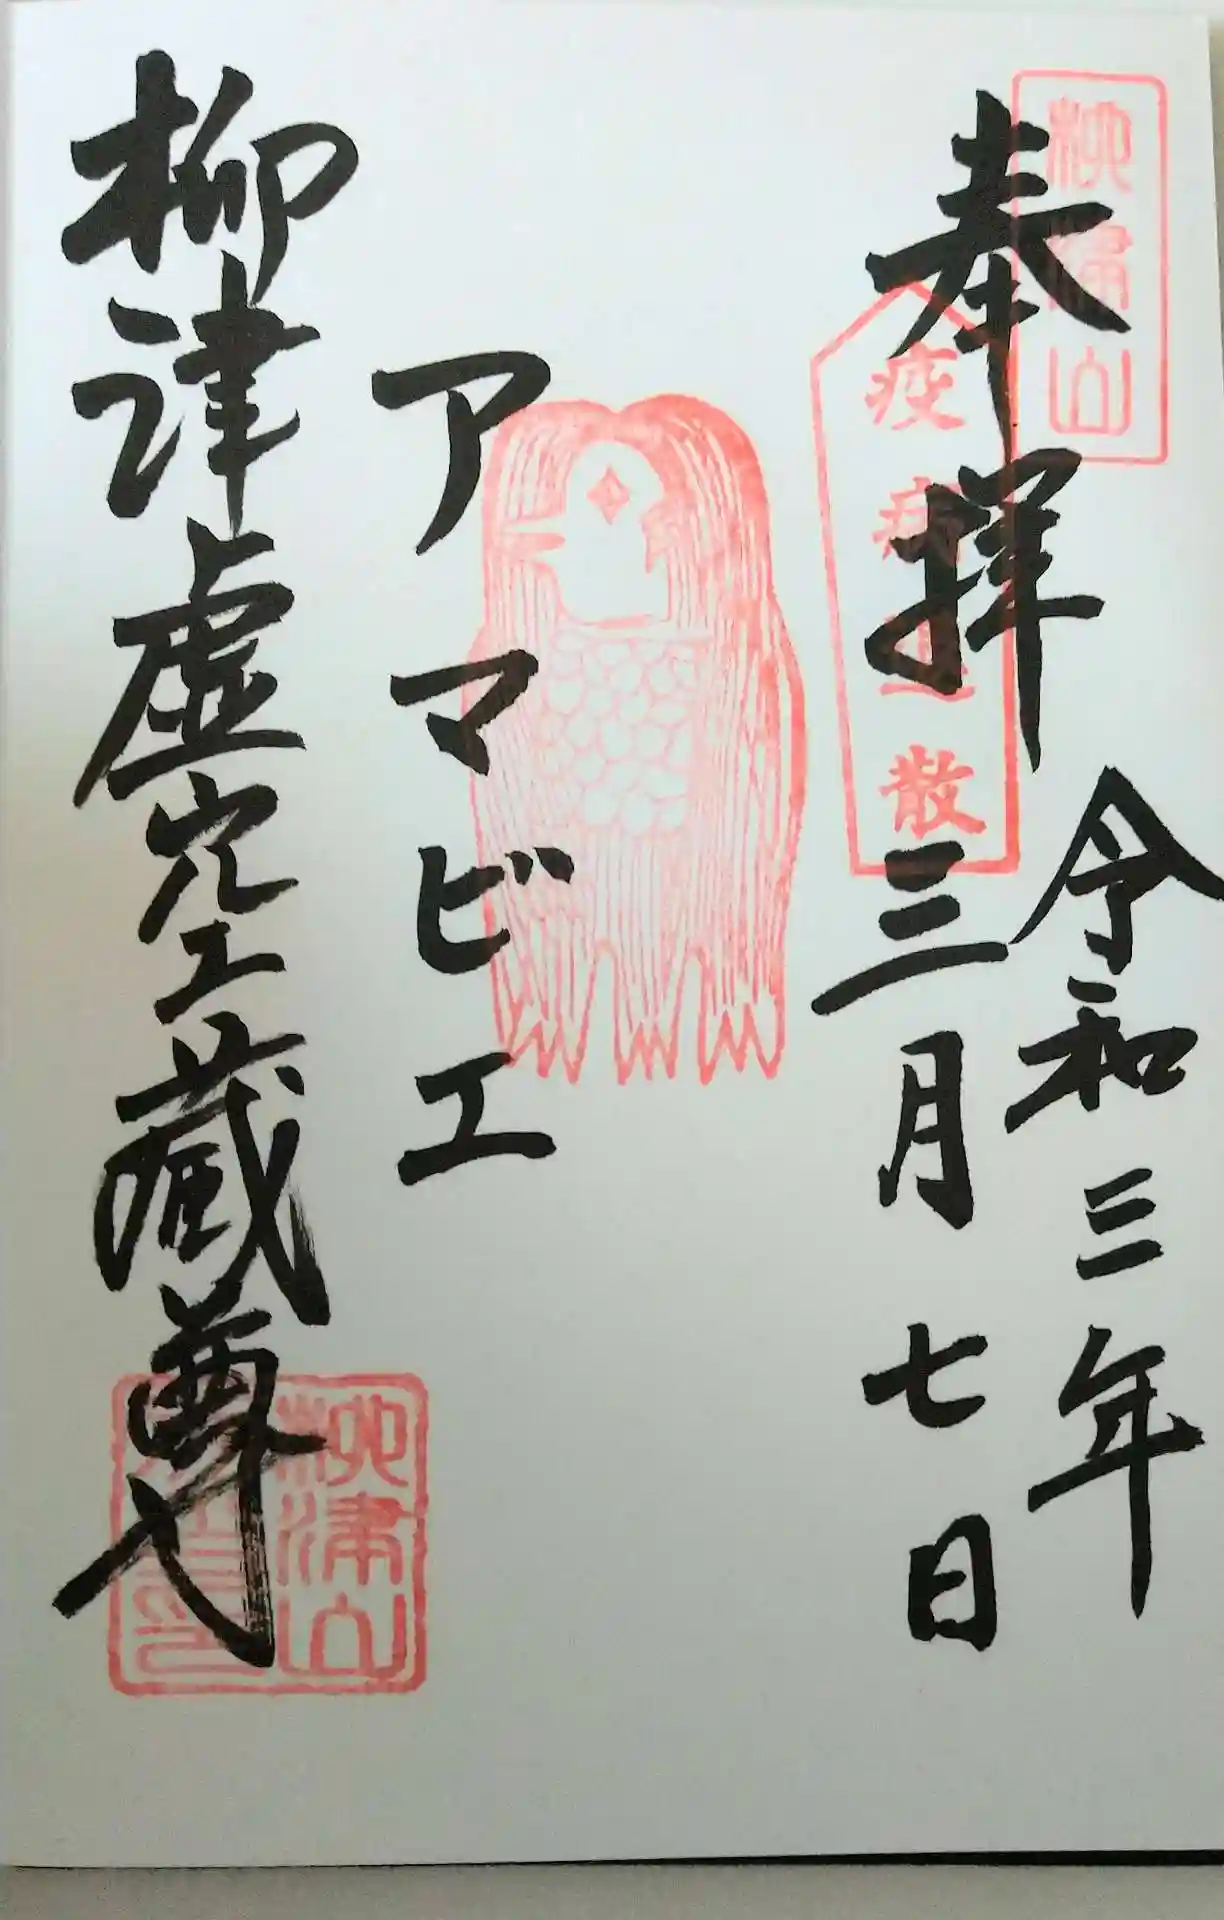 柳津山
奉拝
疫病退散
令和三年
三月七日
アマビエ
柳津虚空蔵尊
柳津山